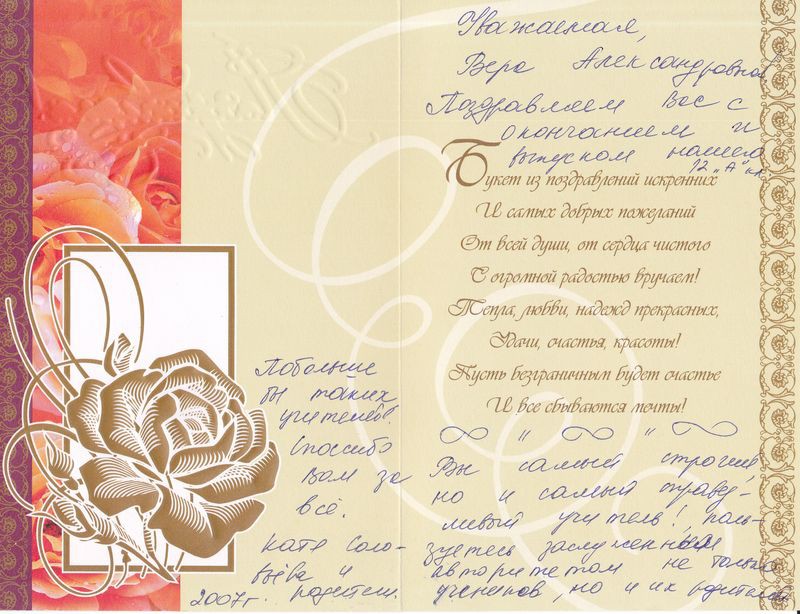 Уважаемая,
Вера Александровна!
Поздравляем Вас с
окончанием и
выпуском нашего
12 „А" кл
Букет из поздравлений искренних
И самых добрых пожеланий
От всей души, от сердца чистого
С огромной радостью вручаем!
Тепла, любви, надежд прекрасных,
Удачи, счастья, красоты!
Пусть безграничным будет счастье
И все сбываются мечты!
Вы самый строгий,
но и самый правед-
ливый учитель!, поль-
зуетесь заслуженным
авторитетом не только
учеников, но и их родителей
Побольше
бы таких
учителей!
Спасибо
Вам за
всё.
Катя Соло-
вьёва и
родители.
2007г.